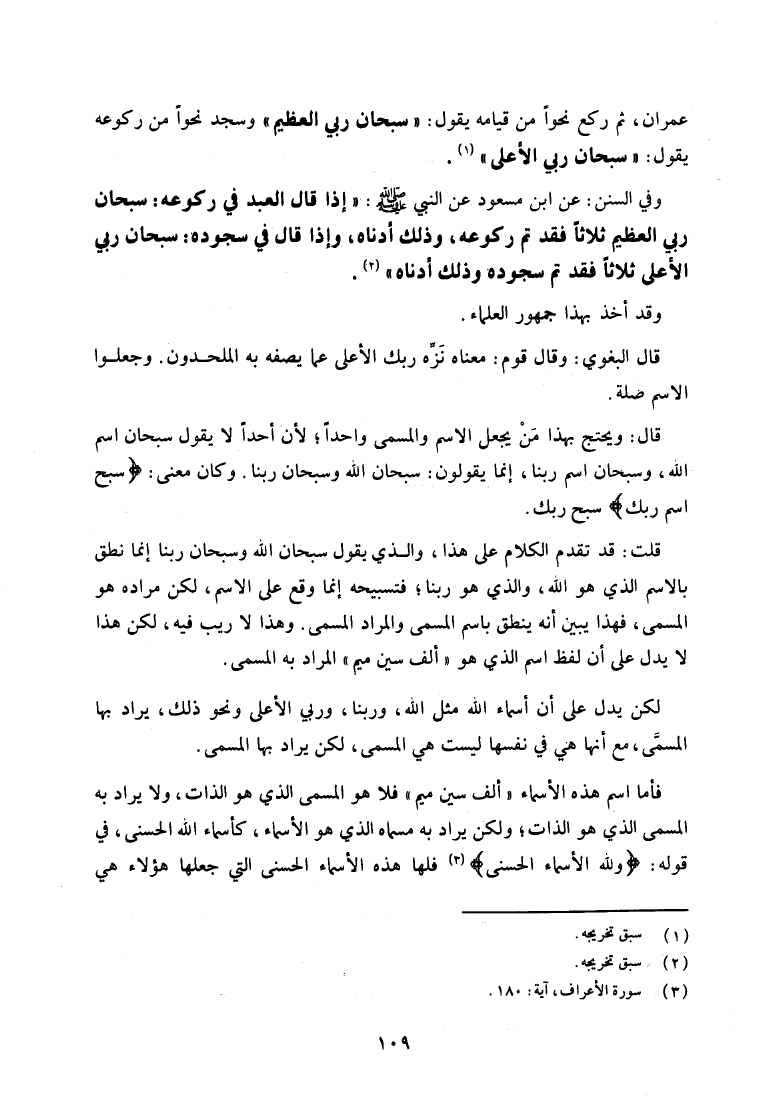 عمران، ثم ركع نحواً من قيامه يقول: «سبحان ربي العظيم» وسجد نحواً من ركوعه
يقول: «سبحان ربي الأعلى» (١) .
وفي السنن: عن ابن مسعود عن النبي ﷺ: «إذا قال العبد في ركوعه: سبحان
ربي العظيم ثلاثاً فقد تم ركوعه، وذلك أدناه، وإذا قال في سجوده: سبحان ربي
الأعلى ثلاثاً فقد تم سجوده وذلك أدناه» (٢) .
وقد أخذ بهذا جمهور العلماء .
قال البغوي: وقال قوم: معناه نَزِّه ربك الأعلى عما يصفه به الملحدون. وجعلوا
الاسم صلة.
قال: ويحتج بهذا مَنْ يجعل الاسم والمسمى واحداً؛ لأن أحداً لا يقول سبحان اسم
الله، وسبحان اسم ربنا، إنما يقولون: سبحان الله وسبحان ربنا. وكان معنى: ﴿سبح
اسم ربك﴾ سبح ربك.
قلت: قد تقدم الكلام على هذا، والذي يقول سبحان الله وسبحان ربنا إنما نطق
بالاسم الذي هو الله، والذي هو ربنا؛ فتسبيحه إنما وقع على الاسم، لكن مراده هو
المسمى، فهذا يبين أنه ينطق باسم المسمى والمراد المسمى. وهذا لا ريب فيه، لكن هذا
لا يدل على أن لفظ اسم الذي هو «ألف سين ميم» المراد به المسمى.
لكن يدل على أن أسماء الله مثل الله، وربنا، وربي الأعلى ونحو ذلك، يراد بها
المسمَّى، مع أنها هي في نفسها ليست هي المسمى، لكن يراد بها المسمى.
فأما اسم هذه الأسماء «ألف سين ميم» فلا هو المسمى الذي هو الذات، ولا يراد به
المسمى الذي هو الذات؛ ولكن يراد به مسماه الذي هو الأسماء، كأسماء الله الحسنى، في
قوله: ﴿ولله الأسماء الحسنى﴾ (٣) فلها هذه الأسماء الحسنى التي جعلها هؤلاء هي
(١) سبق تخريجه.
(٢) سبق تخريجه.
(٣) سورة الأعراف، آية: ١٨٠ .
١٠٩